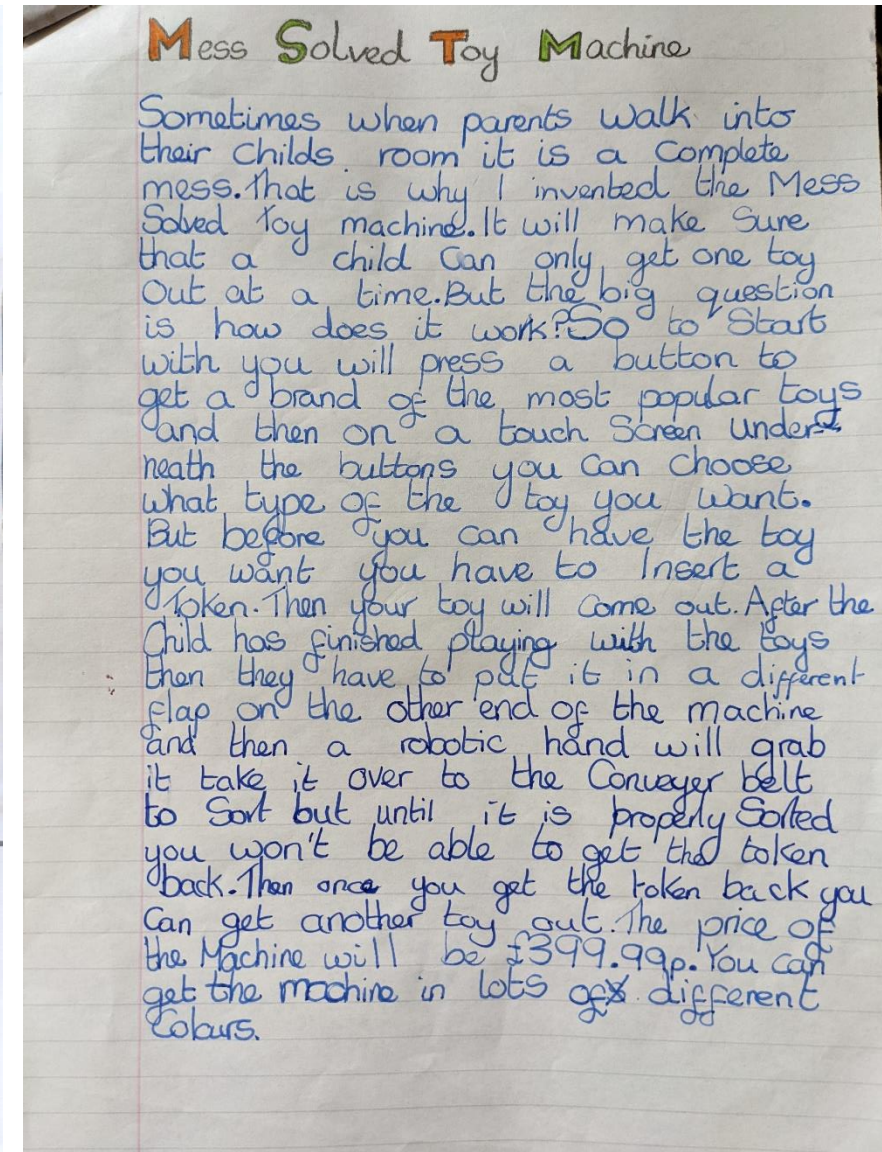 Mess Solved Toy Machine
Sometimes when parents walk into
their childs room it is a complete
mess. That is why I invented the Mess
Solved Toy machine. It will make Sure
that a child Can only get one toy
out at a time. But the big question
is how does it work? So to Start
with you will press a button to
get a brand of the most popular toys
and then on a touch Screen under-
neath the buttons you can choose
what type of the toy you want.
But before you can have the toy
you want you have to Insert a
Token. Then your toy will come out. After the
Child has finished playing with the toys
then they have to put it in a different
flap on the other end of the machine
and then a robotic hand will grab
it take it over to the Conveyer belt
to Sort but until it is properly Sorted
you won't be able to get the token
back. Then once you get the token back you
Can get another toy out. The price of
the Machine will be £399.99p. You can
get the machine in lots of different
Colours.